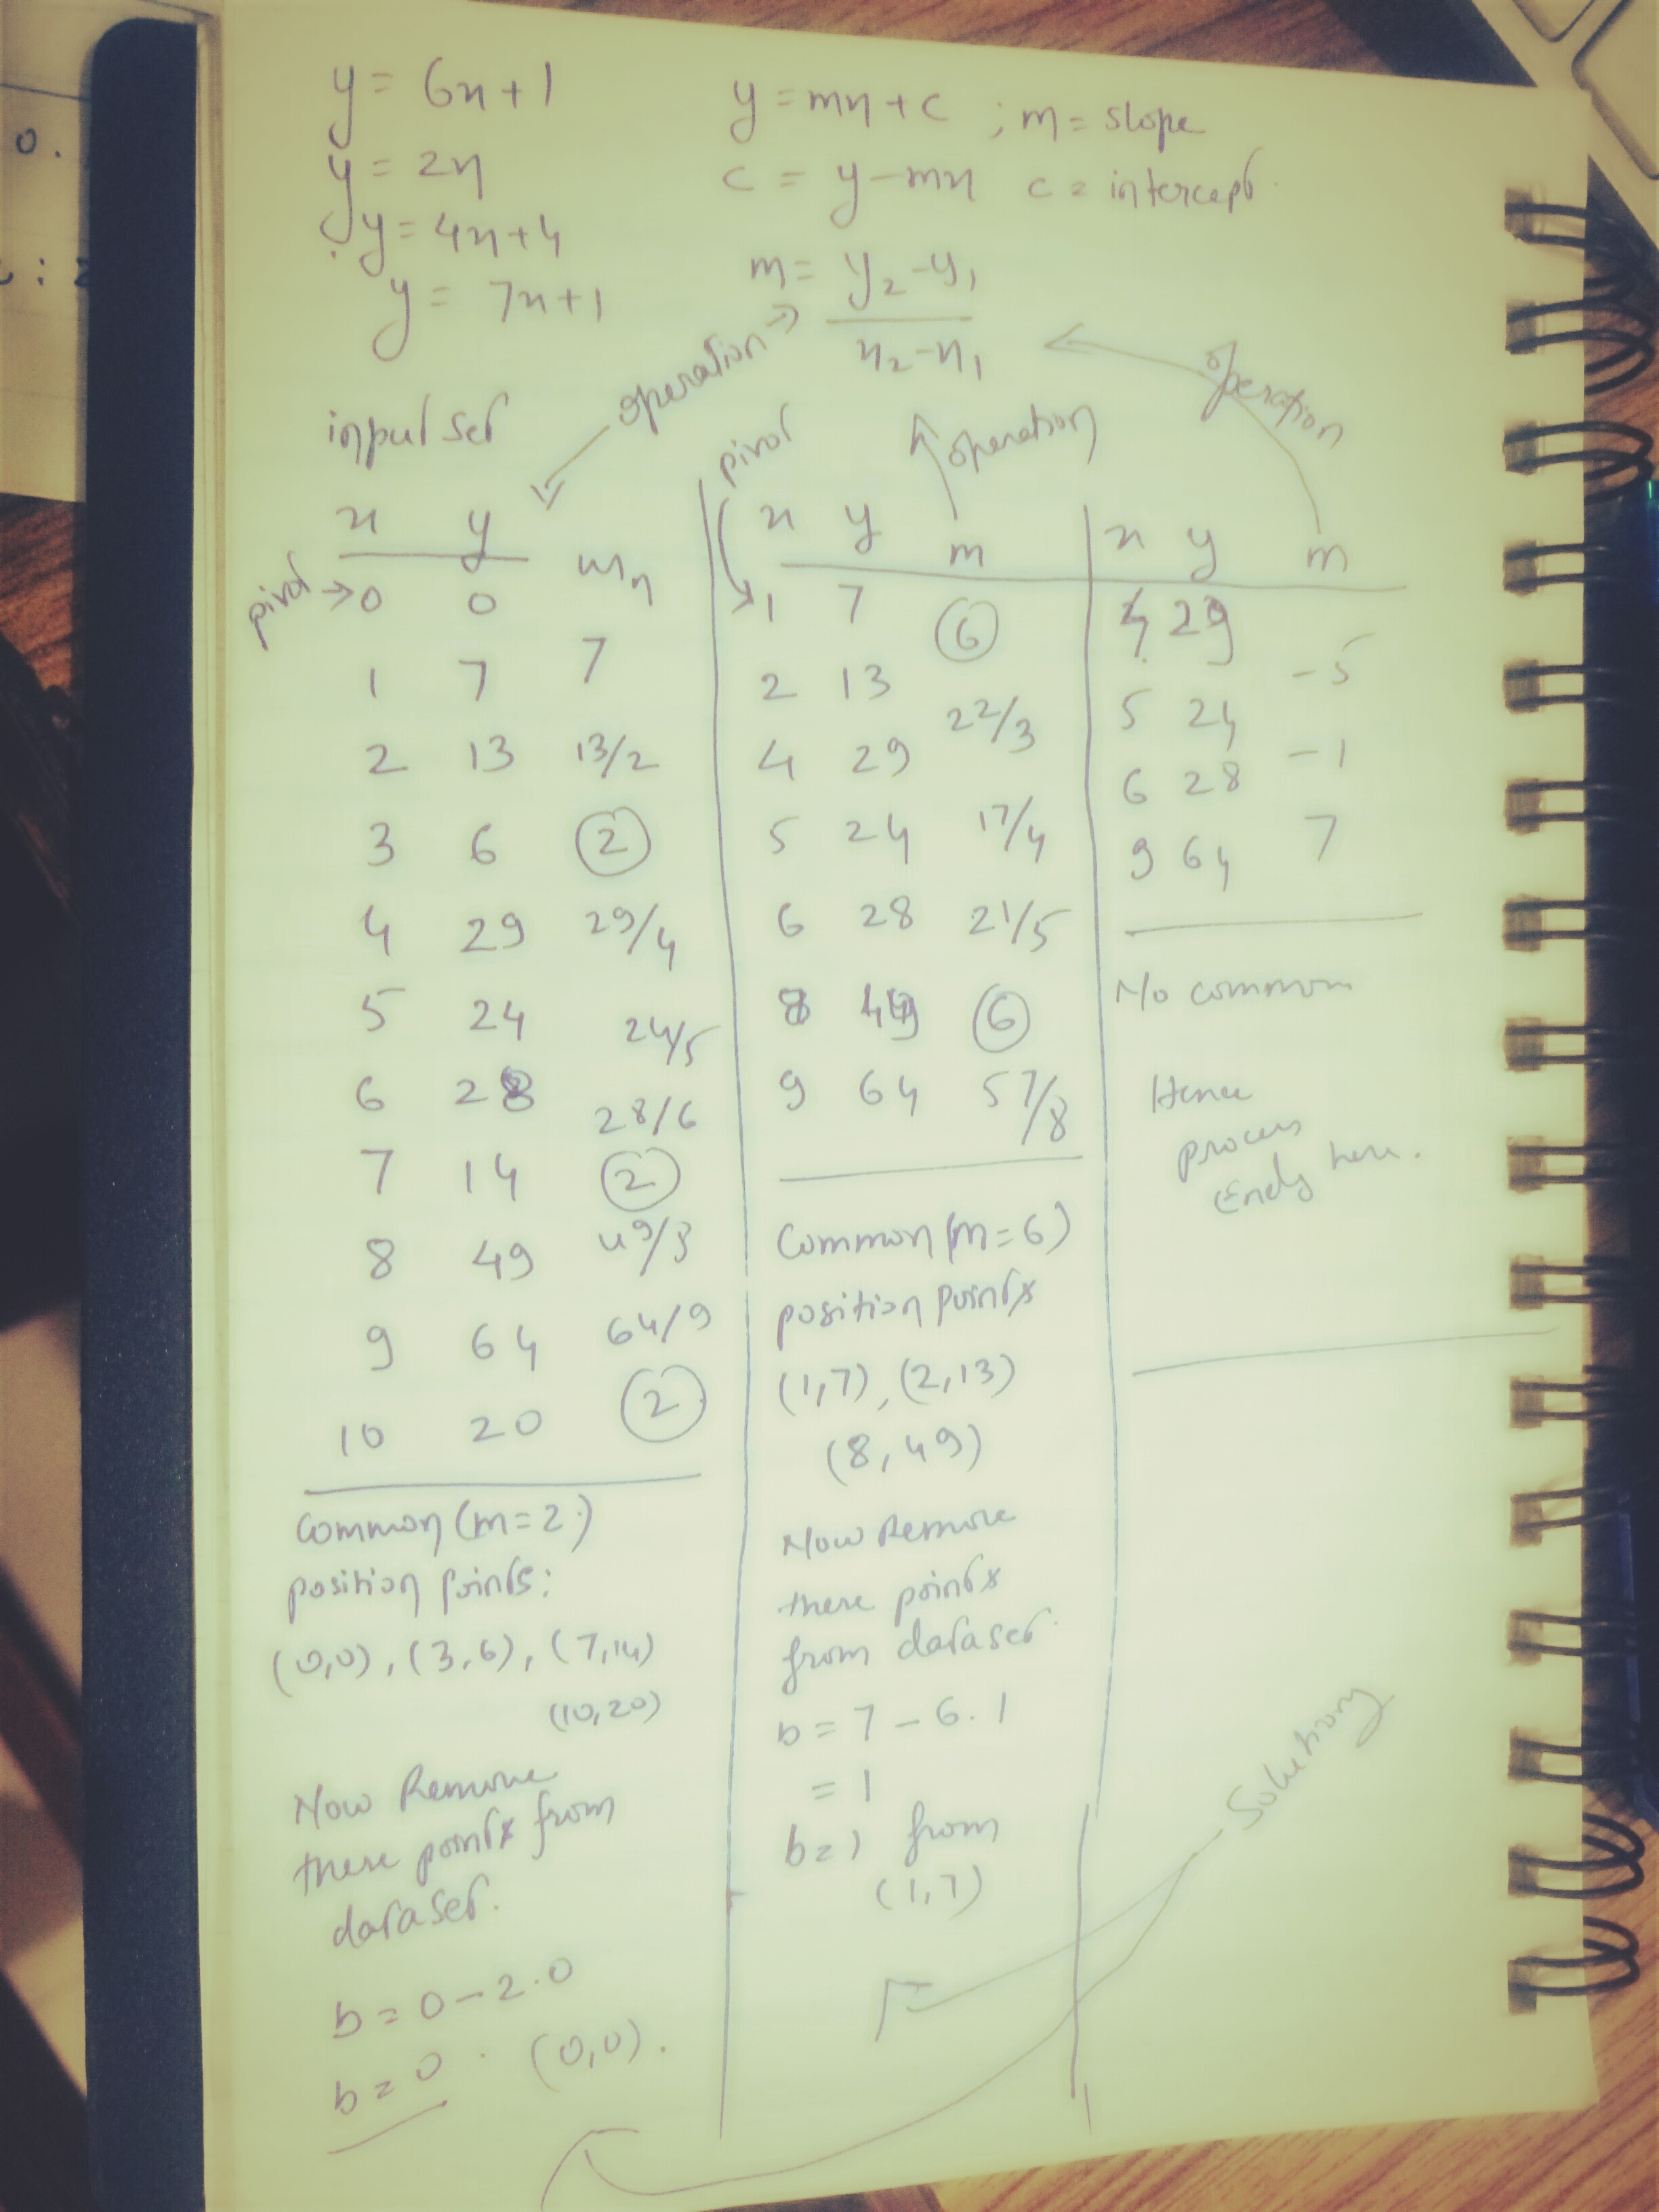 y = 6x+1
y = 2x
y = 4x+4
y = 7x+1
y = mx + c ; m = slope
c = y - mx c = intercept.
m = y₂-y₁
x₂-x₁
operation
operation
operation
input set
x y mₙ
pivot → 0 0
1 7 7
2 13 13/2
3 6 2
4 29 29/4
5 24 24/5
6 28 28/6
7 14 2
8 49 49/8
9 64 64/9
10 20 2
Common (m=2)
position points:
(0,0), (3,6), (7,14)
(10,20)
Now Remove
these points from
dataset.
b = 0-2.0
b = 0 . (0,0).
pivot
x y m
1 7
6
2 13
22/3
4 29
5 24 17/4
6 28 21/5
8 49 6
9 64 57/8
Common (m=6)
position points
(1,7), (2,13)
(8,49)
Now Remove
these points
from dataset.
b = 7 - 6.1
= 1
b = 1 from
(1,7)
x y m
4 29
-5
5 24
-1
6 28
9 64 7
No common
Hence
process
Ends here.
Solutions
0.